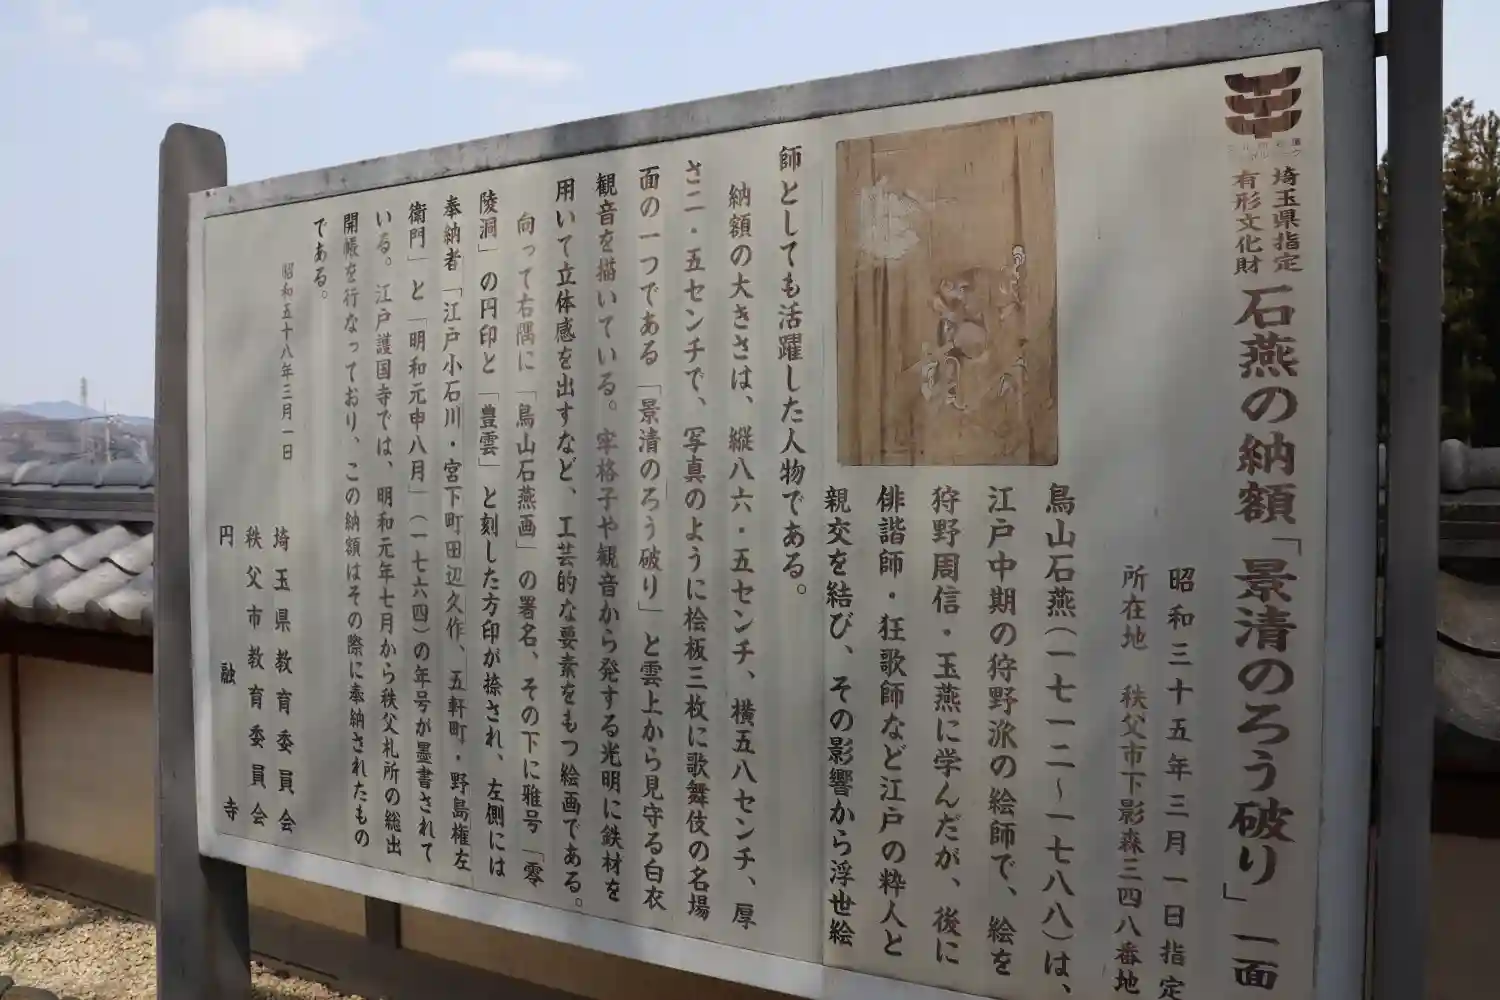 埼玉県指定
有形文化財
石燕の納額「景清のろう破り」一面
昭和三十五年三月一日指定
所在地 秩父市下影森三四八番地
鳥山石燕(一七一二〜一七八八)は、
江戸中期の狩野派の絵師で、絵を
狩野周信・玉燕に学んだが、後に
俳諧師・狂歌師など江戸の粋人と
親交を結び、その影響から浮世絵
師としても活躍した人物である。
納額の大きさは、縦八六・五センチ、横五八センチ、厚
さ二・五センチで、写真のように桧板三枚に歌舞伎の名場
面の一つである「景清のろう破り」と雲上から見守る白衣
観音を描いている。牢格子や観音から発する光明に鉄材を
用いて立体感を出すなど、工芸的な要素をもつ絵画である。
向って右隅に「鳥山石燕画」の署名、その下に雅号「零
陵洞」の円印と「豊雲」と刻した方印が捺され、左側には
奉納者「江戸小石川・宮下町田辺久作、五軒町・野島権左
衛門」と「明和元申八月」(一七六四)の年号が墨書されて
いる。江戸護国寺では、明和元年七月から秩父札所の総出
開帳を行なっており、この納額はその際に奉納されたもの
である。
昭和五十八年三月一日
埼玉県教育委員会
秩父市教育委員会
円融寺